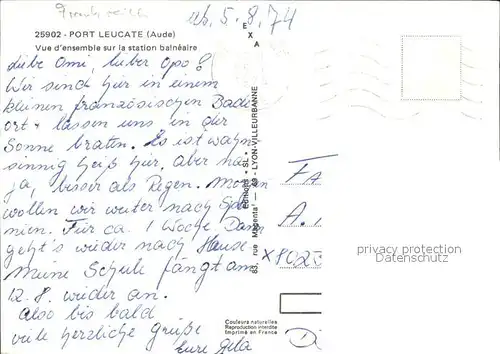 Frankreich
ab. 5.8.74
25902 - PORT LEUCATE (Aude)
Vue d'ensemble sur la station balnéaire
EXA
liebe Omi, lieber Opa!
Wir sind hier in einem
kleinen französischen Bade
ort + lassen uns in der
Sonne braten. Es ist wahn
sinnig heiß hier, aber na
ja, besser als Regen. Morgen
wollen wir weiter nach Spa
nien. Für ca. 1 Woche. Dann
geht's wieder nach Hause.
Meine Schule fängt am
12.8. wieder an.
Also bis bald
viele herzliche Grüße
Eure
Editions "SL"
83, rue Magenta - 69 - LYON-VILLEURBANNE
FA
A.
X8023
D
privacy protection
Datenschutz
Couleurs naturelles
Reproduction interdite
Imprimé en France